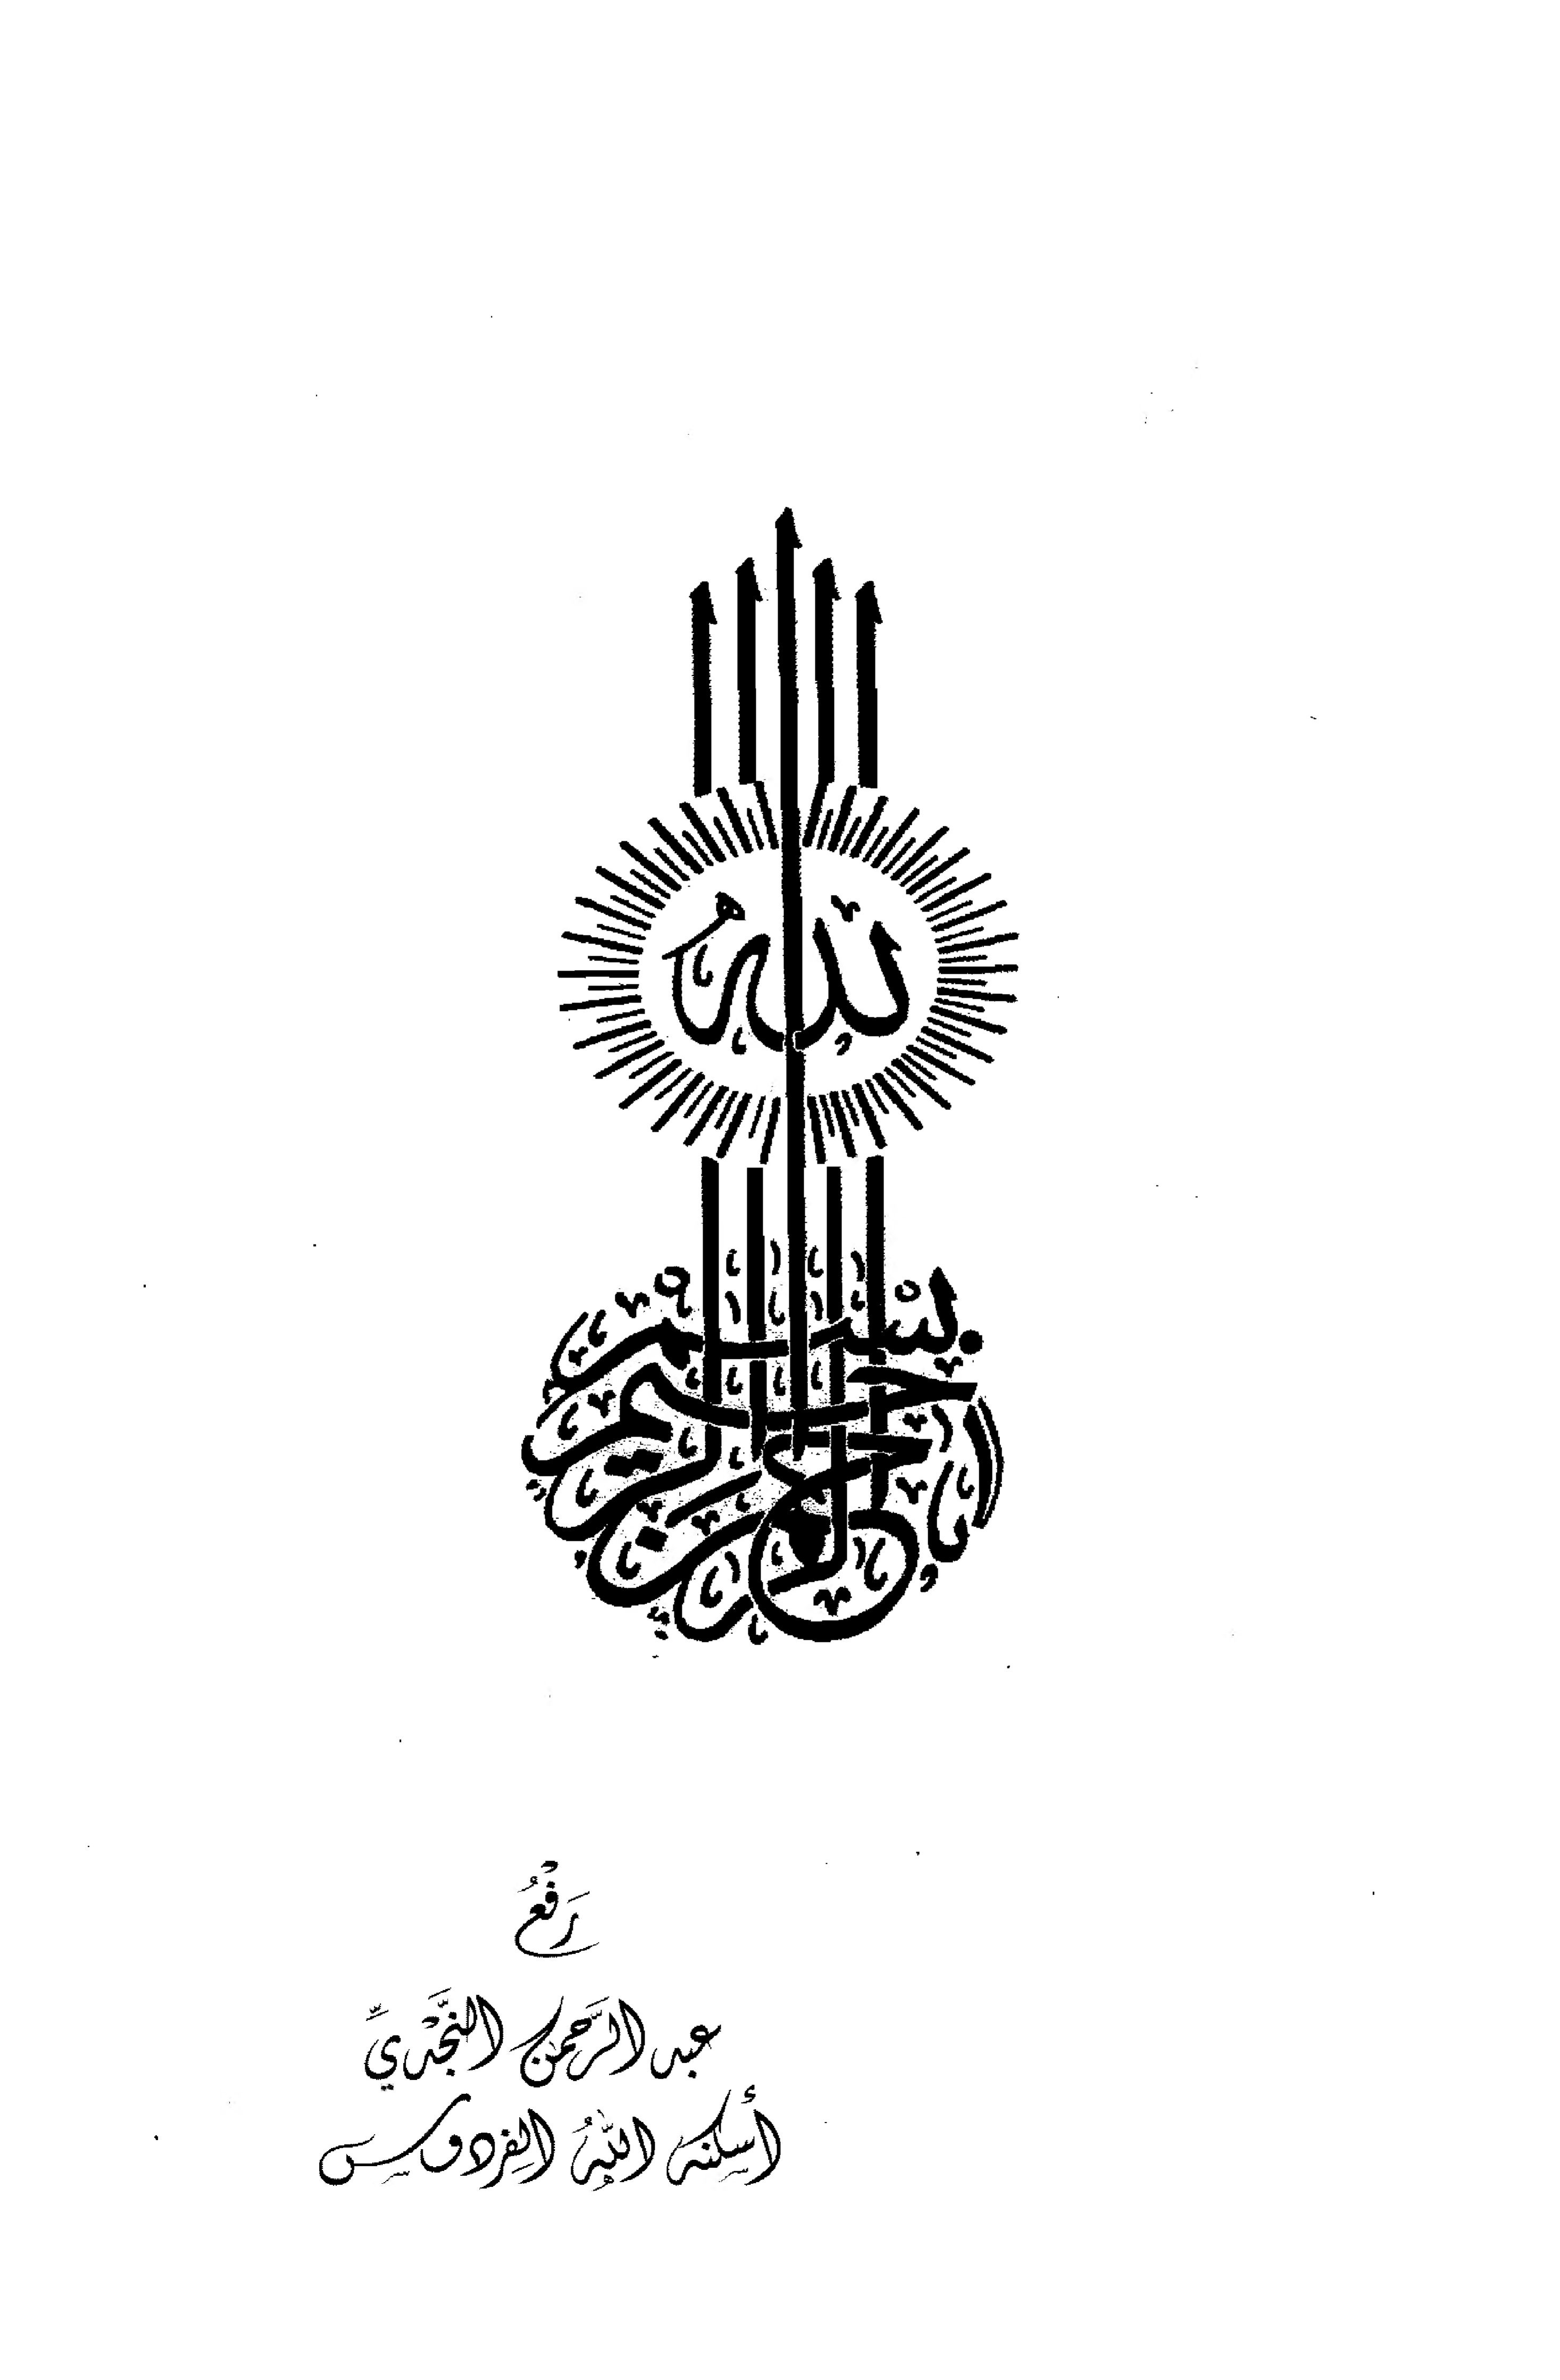 بسم الله الرحمن الرحيم
رَفْعُ
عبد الرَّحمن النَّجْديِّ
أسكنه اللهُ الفردوس